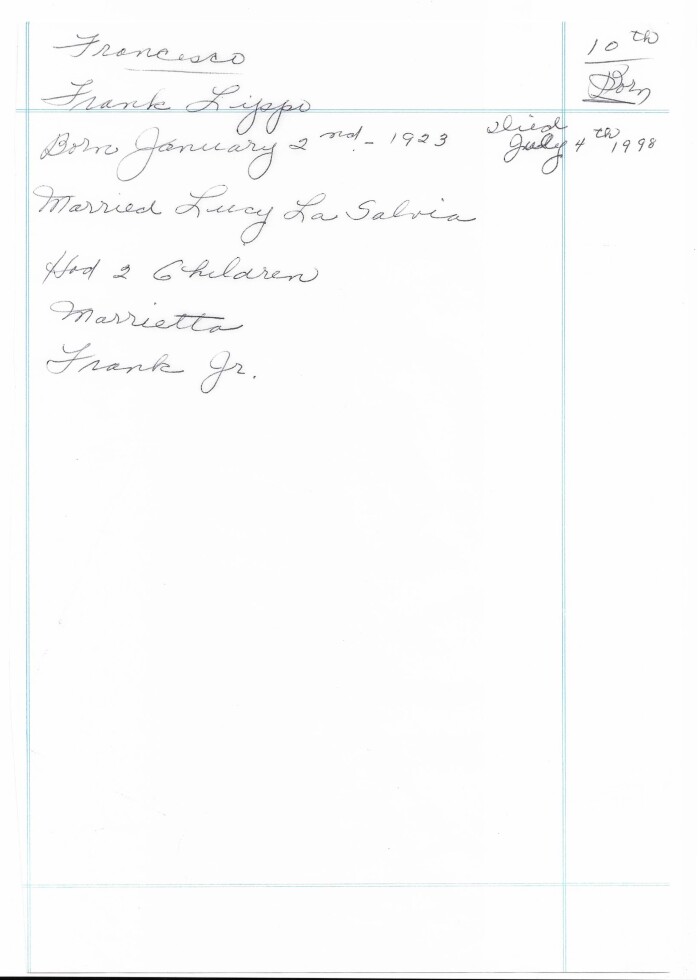 Francesco
10th
Born
Frank Lippo
Born January 2nd - 1923
Died
July 4th, 1998
Married Lucy La Salvia
Had 2 Children
Marrietta
Frank Jr.